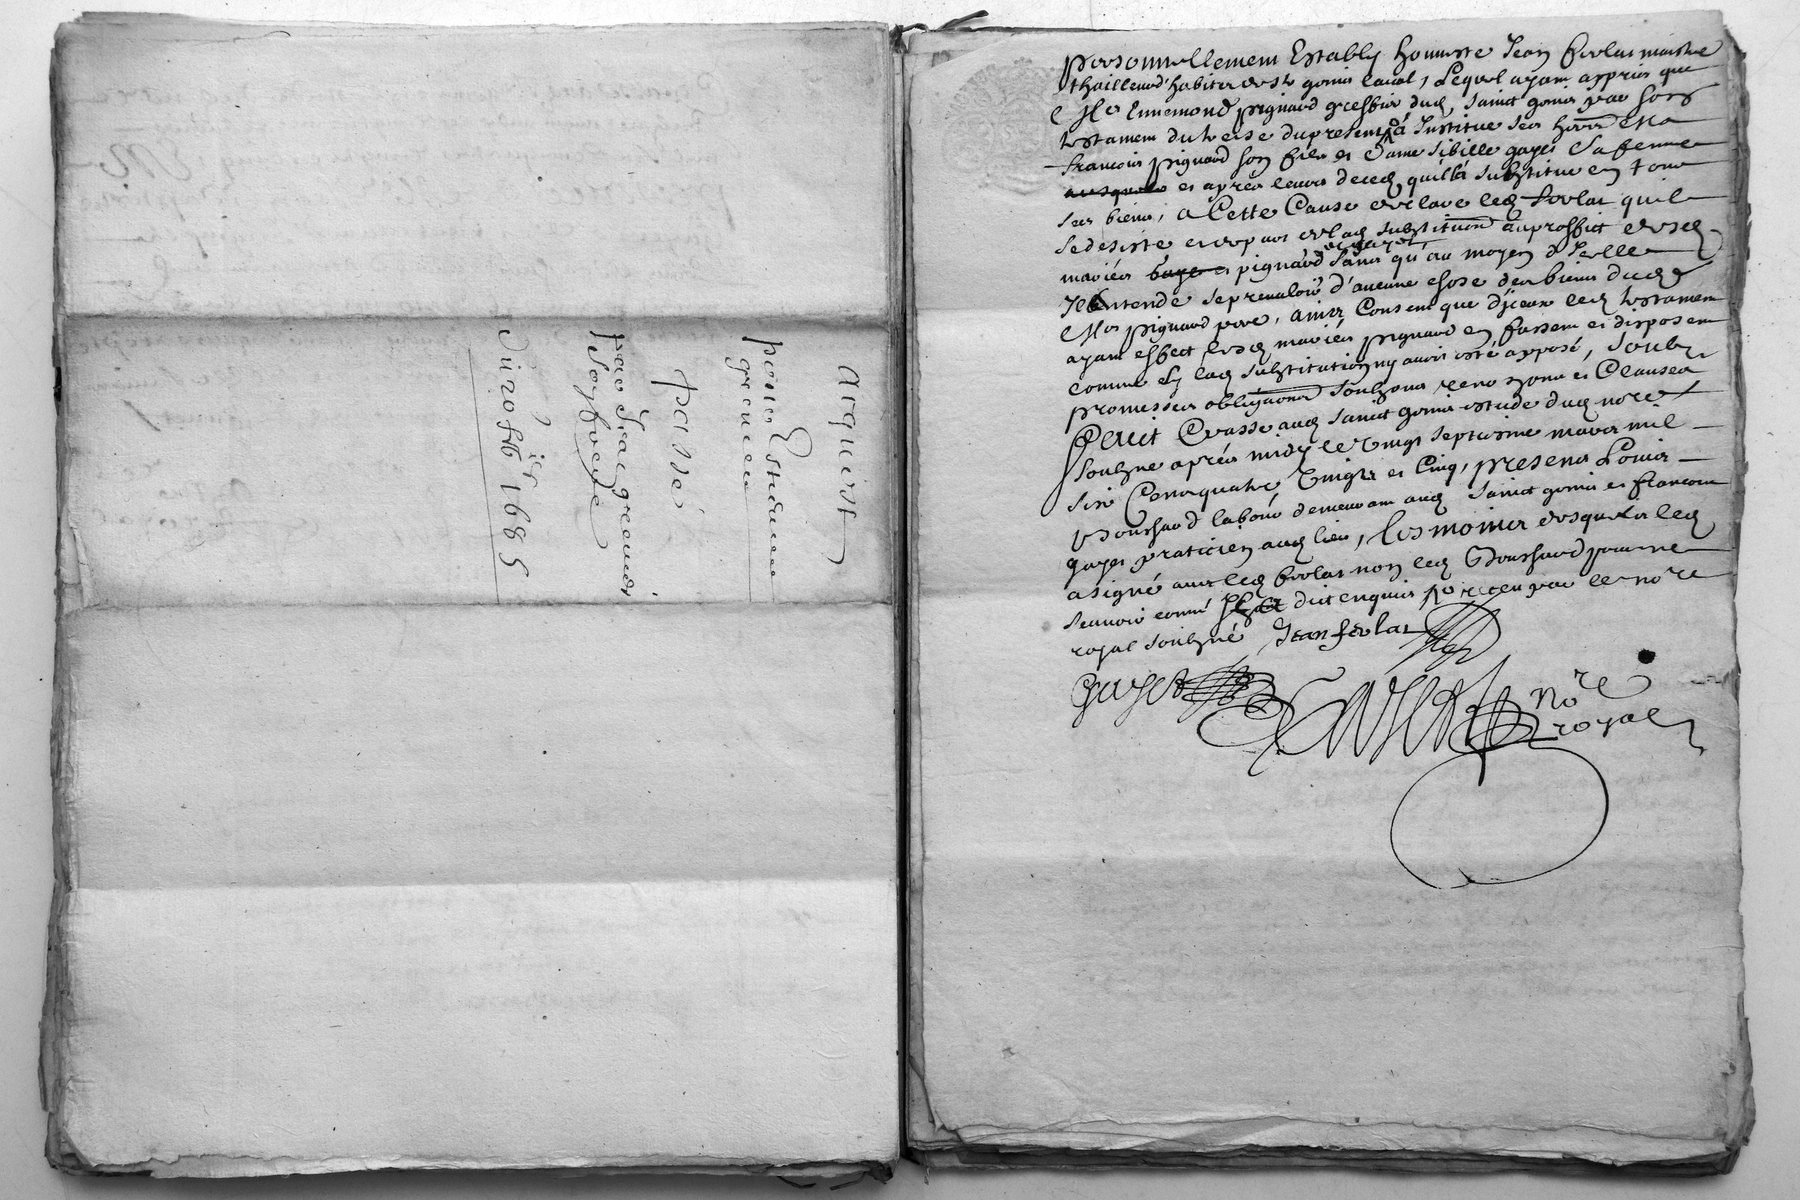 acquist
pour Estienne
greneau
passé
par Jean greneau
du 20 8bre 1685
personnellement Estably honneste Jean ferlat maistre
thailleur d'habitz de St genis laval, Lequel ayant appris que
Mre Ennemond pignard greffier dud. Sainct genis par son
testament du treise du present a Institue ses hers Me
francois pignard son fils et dame sibille gayet sa femme
et apres leurs deced quil la substitue en tous
ses biens, a Cette Cause declare led. ferlat quil
se desiste et depart de lad. substitution au proffict desd.
mariés pignard et gayet sans qu'au moyen d'Icelle
Il entende se prevaloir d'aucune chose des biens dud.
Me pignard pere, ains Consent que d'iceux led. testament
ayant effect lesd. mariés pignard en fassent et disposent
comme sy lad. substitution ny avoit esté apposé, soubz
promesses obligations soubzons renonons et Clauses
faict et passé aud. sainct genis estude dud. nore
soubzné après midy le vingt septiesme mars mil
six Cens quatre vingtz et Cinq, presens Louis
Boussard labour demeurant aud. sainct genis et francois
gayet praticien aud. lieu, tesmoins desquelz led.
a signé avec led. ferlat non led. Boussard pour ne
scavoir comme Il a dict enquis et receu par le nore
royal soubzné Jean ferlat
Gayet nore
royal